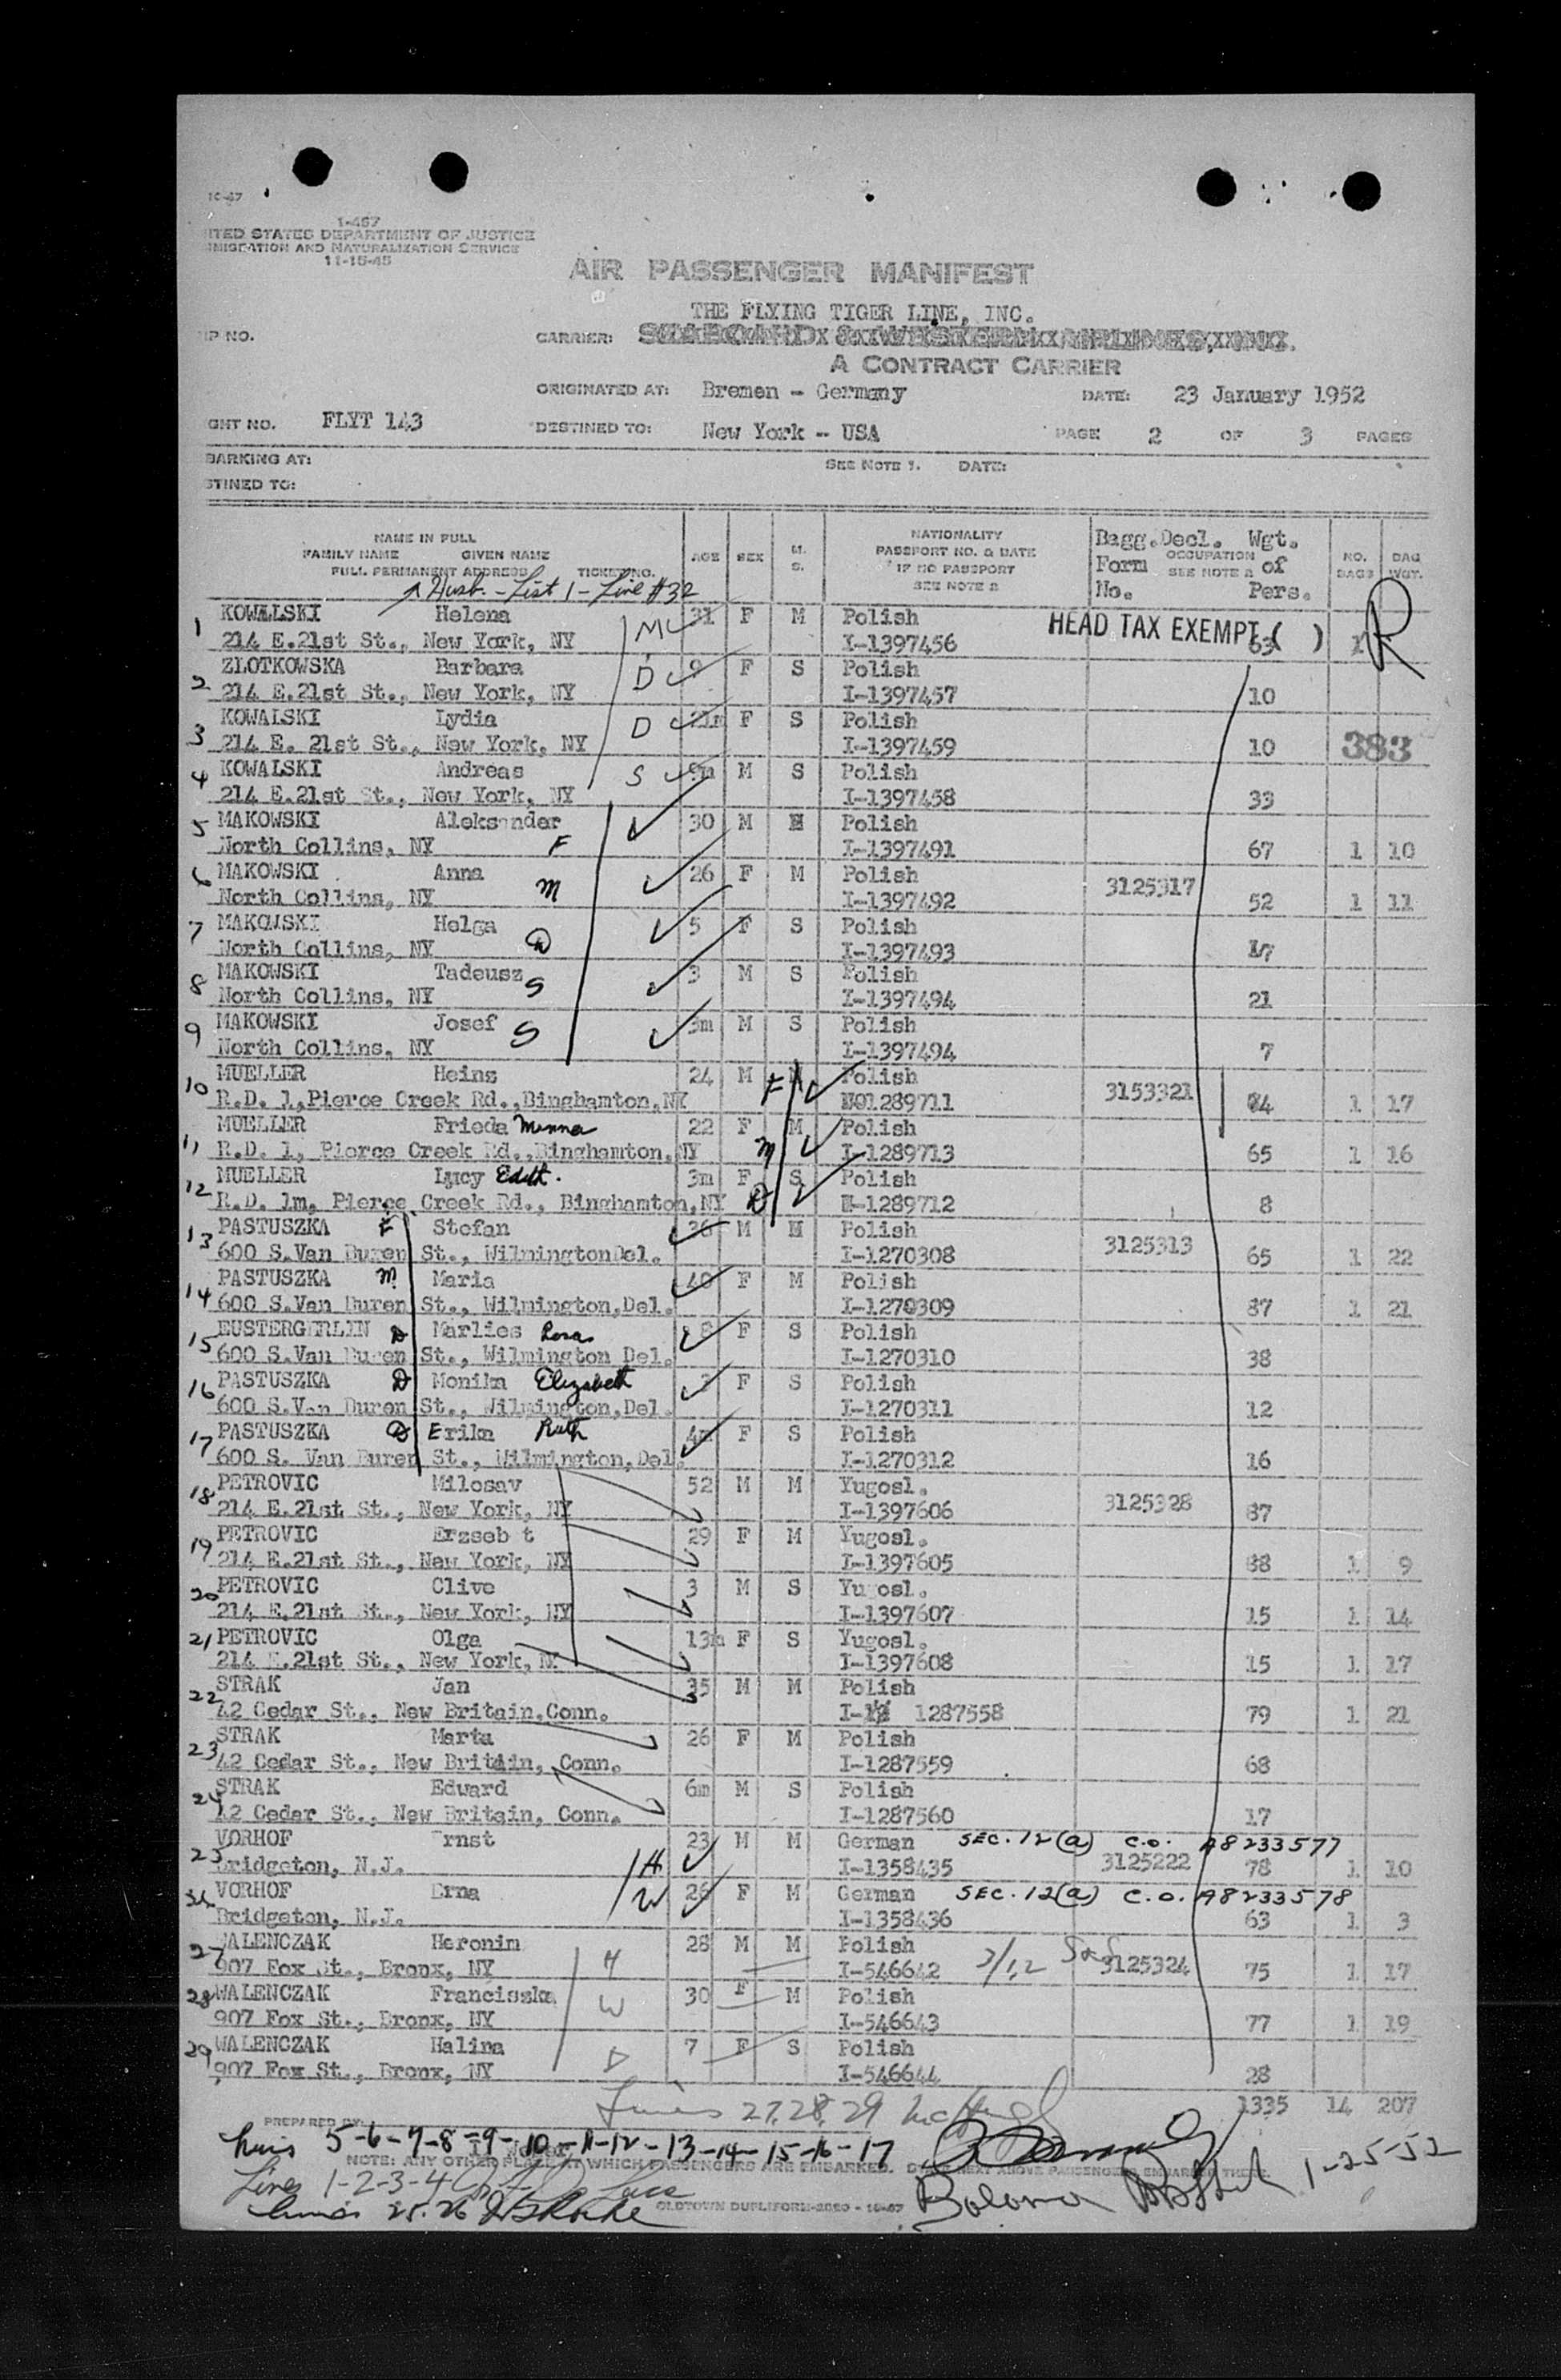 10-47
1-467
ITED STATES DEPARTMENT OF JUSTICE
MIGRATION AND NATURALIZATION SERVICE
11-15-45
AIR PASSENGER MANIFEST
THE FLYING TIGER LINE, INC.
IP NO. CARRIER: SEABOARD & WESTERN AIRLINES, INC.
A CONTRACT CARRIER
ORIGINATED AT: Bremen - Germany DATE: 23 January 1952
GHT NO. FLYT 143 DESTINED TO: New York -- USA PAGE 2 OF 3 PAGES
BARKING AT: SEE NOTE 1. DATE:
STINED TO:
NAME IN FULL
FAMILY NAME GIVEN NAME
FULL PERMANENT ADDRESS TICKET NO.
AGE SEX M. S.
NATIONALITY
PASSPORT NO. & DATE
IF NO PASSPORT
SEE NOTE 2
Bagg.Decl. Wgt.
Form OCCUPATION SEE NOTE 2 of
No. Pers.
NO. BAGS BAG WGT.
Husb. - List 1 - Line #32
1 KOWALSKI Helena M 31 F M Polish
214 E.21st St., New York, NY I-1397456 HEAD TAX EXEMPT ( ) 63 1 R
2 ZLOTKOWSKA Barbara D 9 F S Polish
214 E.21st St., New York, NY I-1397457 10
3 KOWALSKI Lydia D 21m F S Polish
214 E. 21st St., New York, NY I-1397459 10 383
4 KOWALSKI Andreas S 9m M S Polish
214 E.21st St., New York, NY I-1397458 33
5 MAKOWSKI Aleksander 30 M M Polish
North Collins, NY F I-1397491 67 1 10
6 MAKOWSKI Anna 26 F M Polish 3125317
North Collins, NY M I-1397492 52 1 11
7 MAKOWSKI Helga 5 F S Polish
North Collins, NY D I-1397493 17
8 MAKOWSKI Tadeusz S 3 M S Polish
North Collins, NY I-1397494 21
9 MAKOWSKI Josef S 3m M S Polish
North Collins, NY I-1397494 7
10 MUELLER Heinz 24 M F M Polish 3153321
R.D. 1,Pierce Creek Rd.,Binghamton,NY 1289711 84 1 17
11 MUELLER Frieda Minna 22 F M Polish
R.D. 1, Pierce Creek Rd.,Binghamton,NY M I-1289713 65 1 16
12 MUELLER Lucy Edith. 3m F S Polish
R.D. 1m, Pierce Creek Rd., Binghamton,NY D I-1289712 8
13 PASTUSZKA F Stefan 36 M M Polish 3125313
600 S.Van Buren St., WilmingtonDel. I-1270308 65 1 22
14 PASTUSZKA M Maria 40 F M Polish
600 S.Van Buren St., Wilmington,Del. I-1270309 87 1 21
15 EUSTERGERLIN D Marlies Rosa 8 F S Polish
600 S.Van Buren St., Wilmington Del. I-1270310 38
16 PASTUSZKA D Monika Elizabeth 3 F S Polish
600 S.Van Buren St., Wilmington,Del. I-1270311 12
17 PASTUSZKA D Erika Ruth 4m F S Polish
600 S. Van Buren St., Wilmington,Del. I-1270312 16
18 PETROVIC Milosav 52 M M Yugosl. 3125328
214 E.21st St., New York, NY I-1397606 87
19 PETROVIC Erzseb t 29 F M Yugosl.
214 E.21st St., New York, NY I-1397605 88 1 9
20 PETROVIC Clive 3 M S Yugosl.
214 E.21st St., New York, NY I-1397607 15 1 14
21 PETROVIC Olga 13m F S Yugosl.
214 E.21st St., New York, N I-1397608 15 1 17
22 STRAK Jan 35 M M Polish
42 Cedar St., New Britain,Conn. I- 1287558 79 1 21
23 STRAK Marta 26 F M Polish
42 Cedar St., New Britain, Conn. I-1287559 68
24 STRAK Edward 6m M S Polish
42 Cedar St., New Britain, Conn. I-1287560 17
25 VORHOF Ernst 23 M M German SEC. 12(a) C.O. A8233577
Bridgeton, N.J. H I-1358435 3125222 78 1 10
26 VORHOF Erna W 26 F M German SEC. 12(a) C.O. A8233578
Bridgeton, N.J. I-1358436 63 1 3
27 WALENCZAK Heronim 28 M M Polish
907 Fox St., Bronx, NY H I-546642 3/12 3125324 75 1 17
28 WALENCZAK Franciszka W 30 F M Polish
907 Fox St., Bronx, NY I-546643 77 1 19
29 WALENCZAK Halina 7 F S Polish
907 Fox St., Bronx, NY D I-546644 28
Lines 27, 28, 29 1335 14 207
PREPARED BY:
Lines 5-6-7-8-9-10-11-12-13-14-15-16-17
NOTE: ANY OTHER PLACE AT WHICH PASSENGERS ARE EMBARKED.
Lines 1-2-3-4 1-25-52
Lines 25.26 OLDTOWN DUPLIFORM-2089 - 10-47